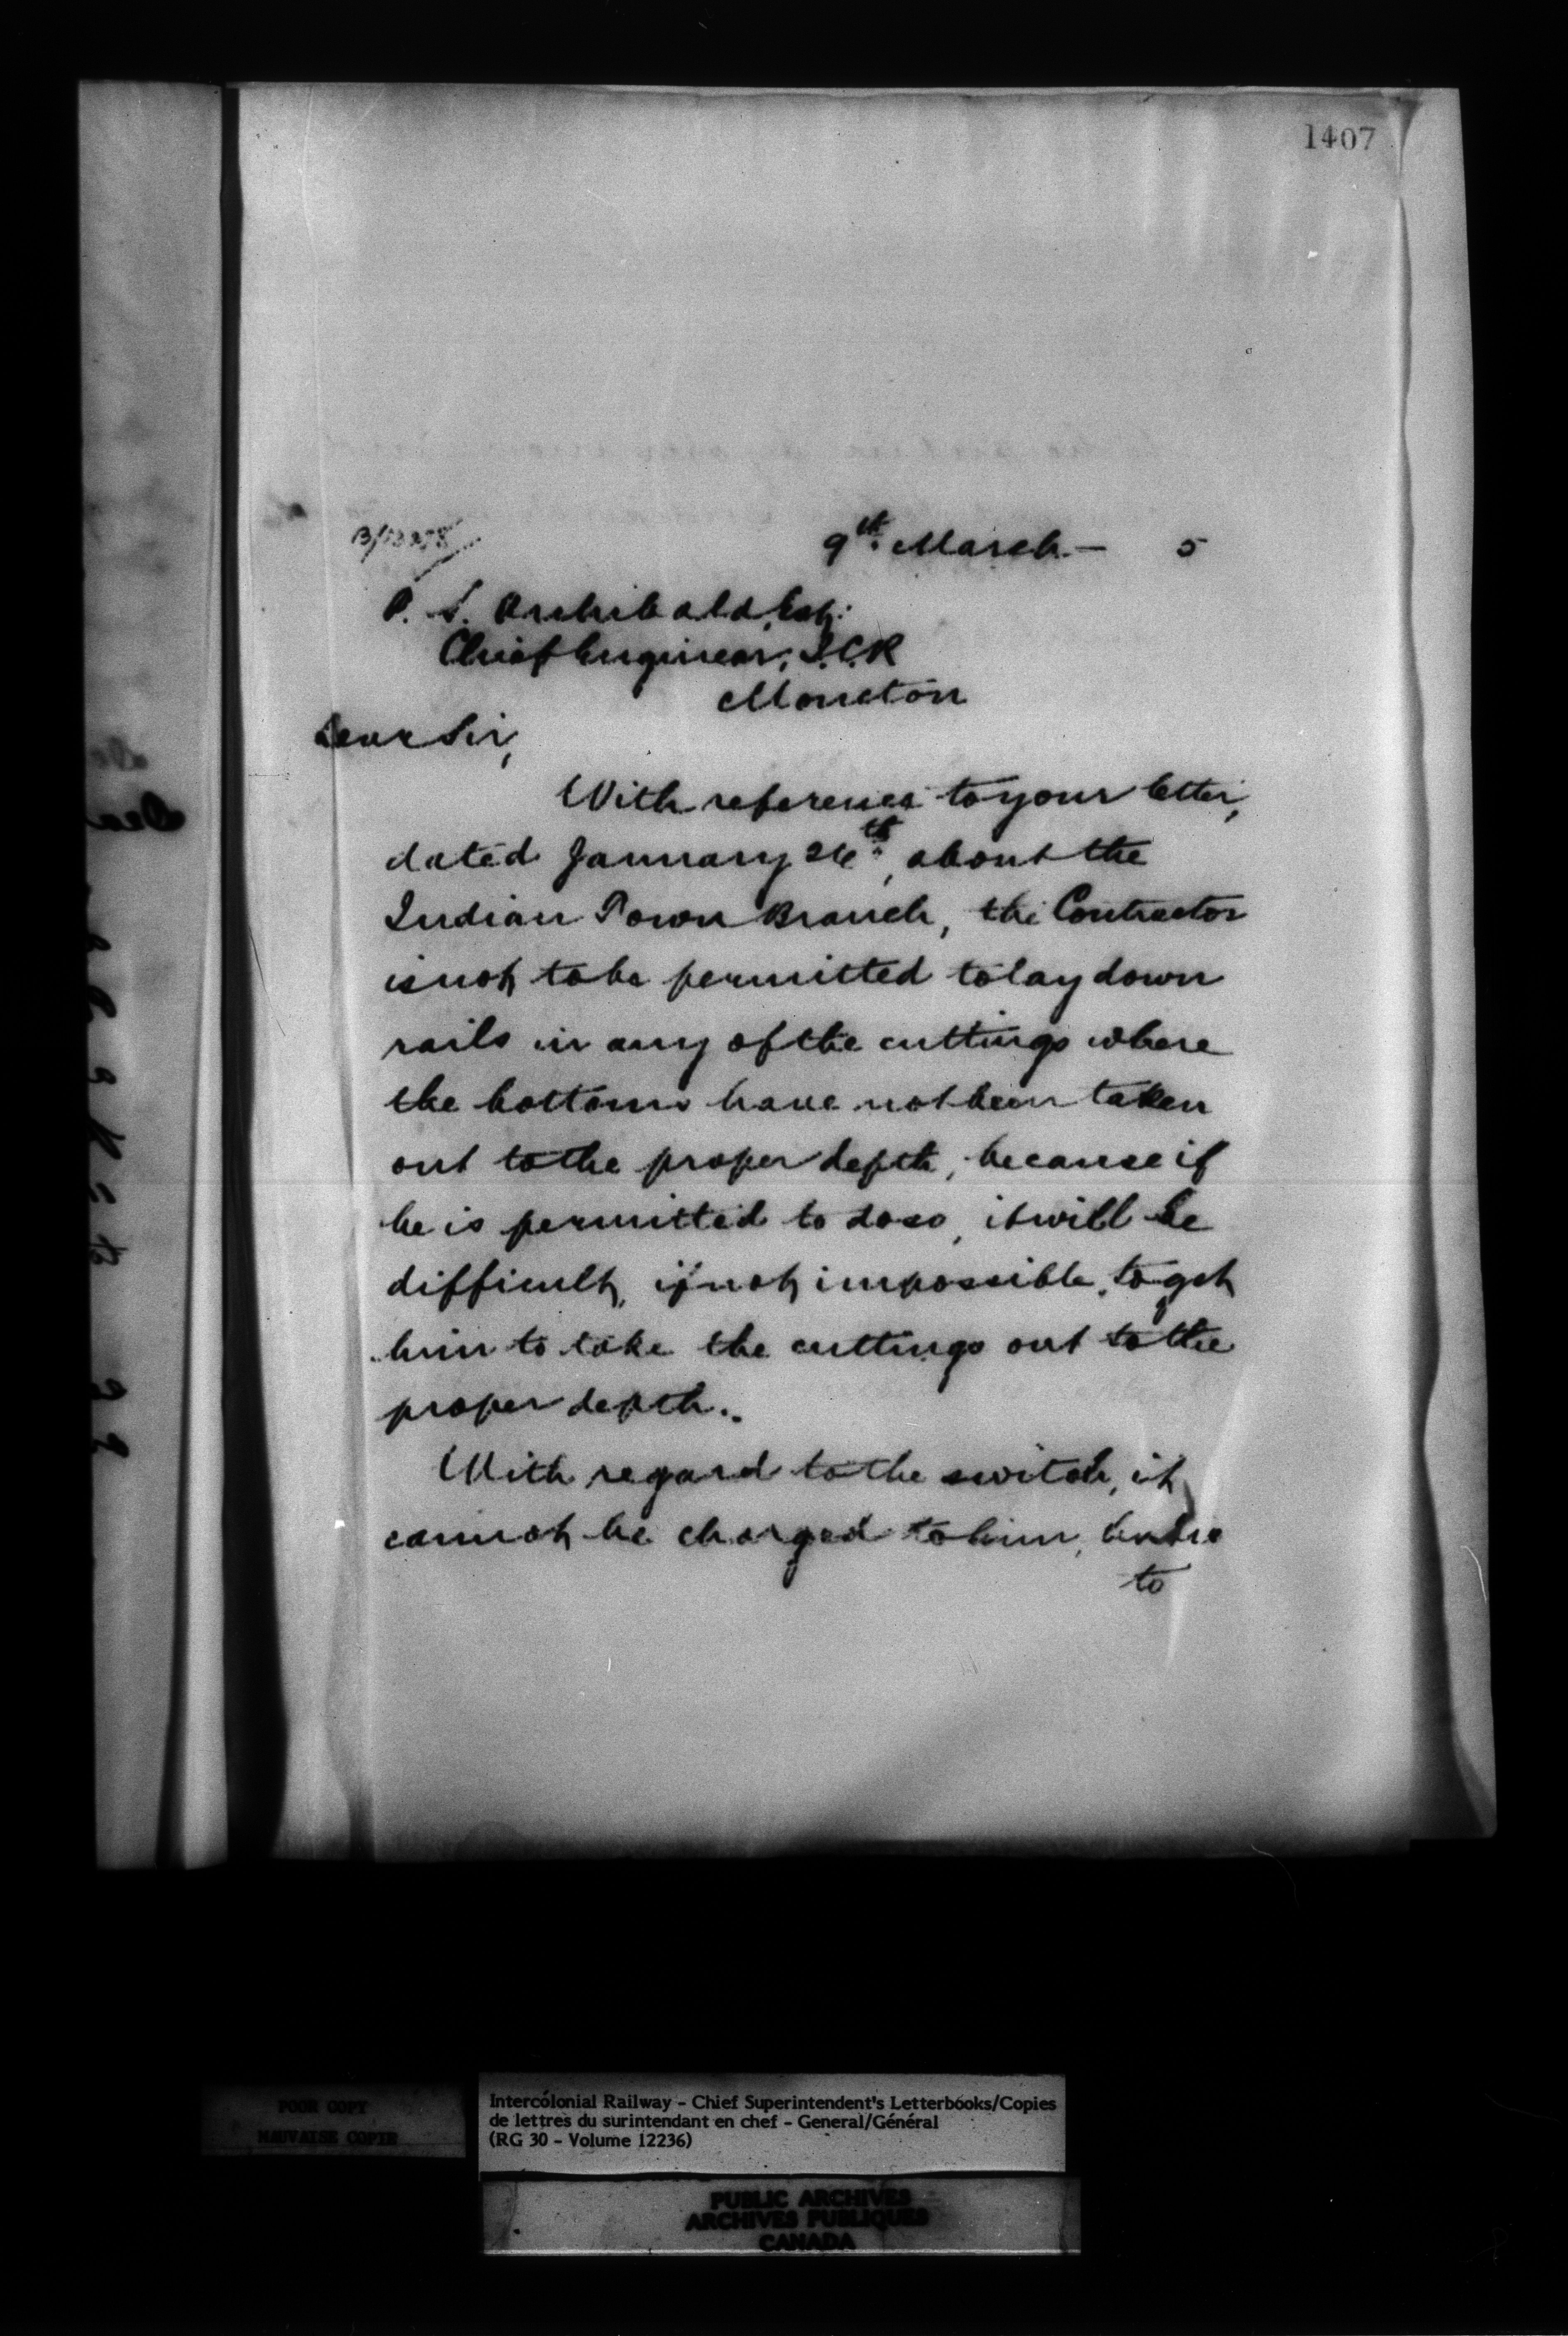 1407
9th. March — 5
P. S. Archibald, Esq:
Chief Engineer, I.C.R
Moncton
Dear Sir,
With reference to your letter,
dated January 26th, about the
Indian Town Branch, the Contractor
is not to be permitted to lay down
rails in any of the cuttings where
the bottoms have not been taken
out to the proper depth, because if
he is permitted to do so, it will be
difficult, if not impossible, to get
him to take the cuttings out to the
proper depth.
With regard to the switch, it
cannot be charged to him, but is
to
POOR COPY
MAUVAISE COPIE
Intercolonial Railway - Chief Superintendent's Letterbooks/Copies
de lettres du surintendant en chef - General/Général
(RG 30 - Volume 12236)
PUBLIC ARCHIVES
ARCHIVES PUBLIQUES
CANADA